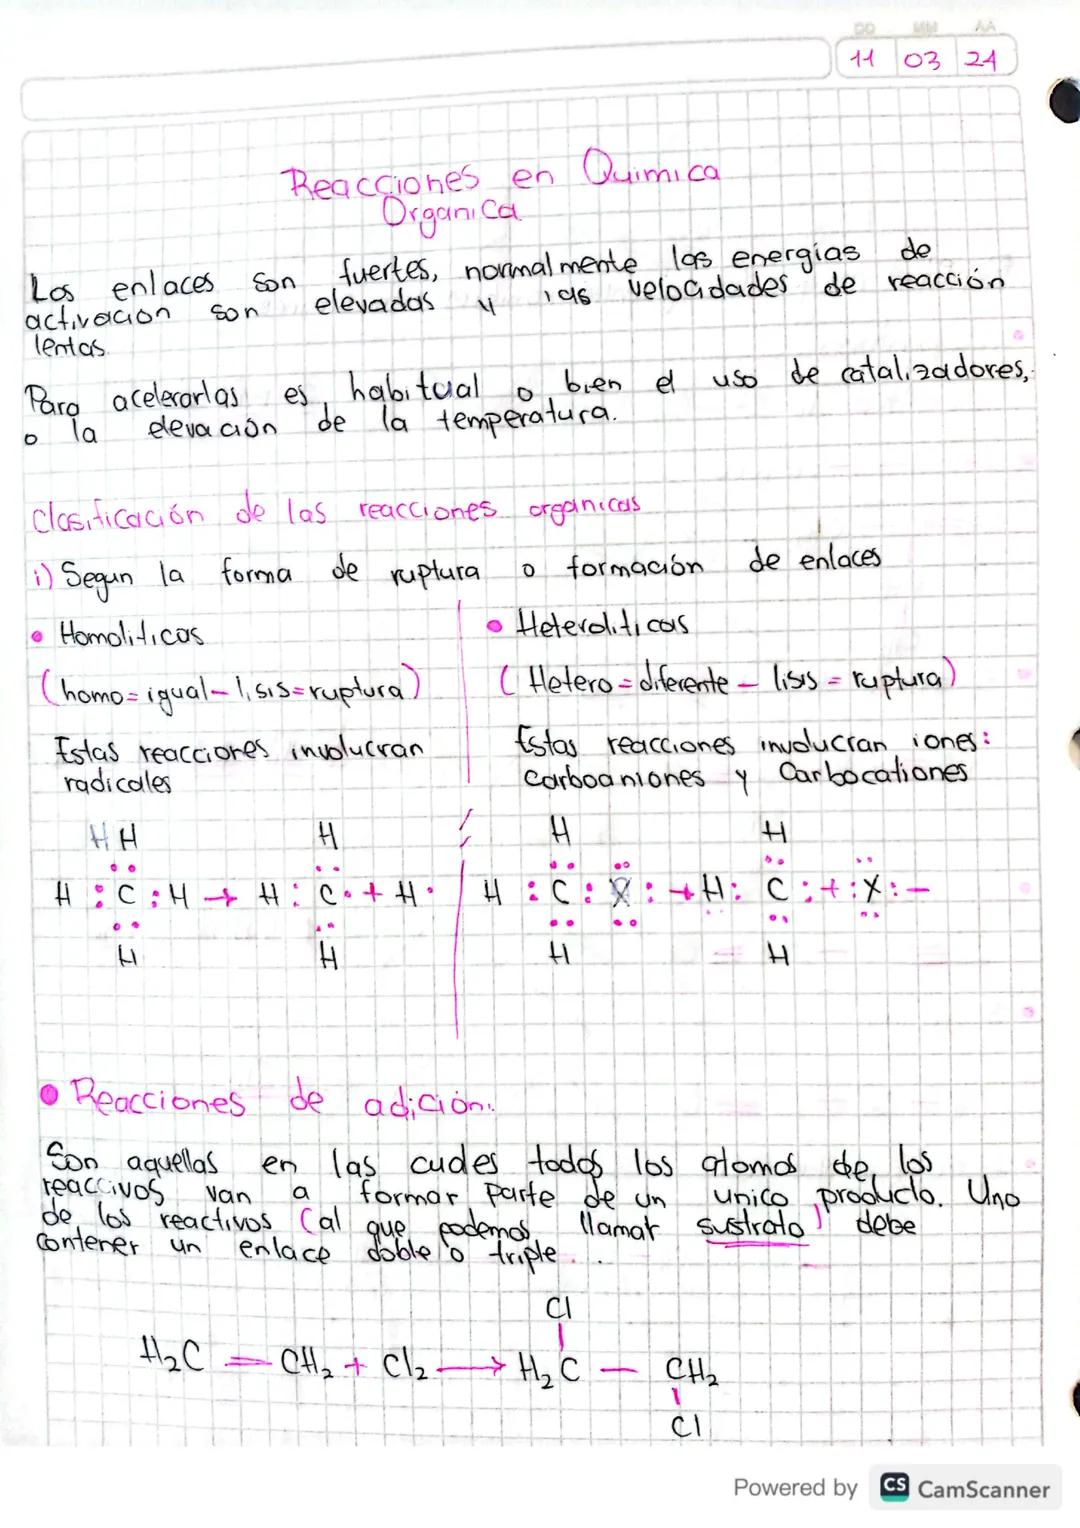 DD MM AA
11 03 24
Reacciones en Quimica
Organica
Los enlaces son fuertes, normalmente las energías de
activacion son elevadas y las velocidades de reacción
lentas.
Para acelerarlas es habitual o bien el uso de catalizadores,
o la elevación de la temperatura.
Clasificación de las reacciones organicas
i) Segun la forma de ruptura o formación de enlaces
• Homoliticas
(homo=igual-lisis=ruptura)
Estas reacciones involucran
radicales
H H H
H : C : H → H : C · + H ·
H H
• Heteroliticas
(Hetero=diferente - lisis = ruptura)
Estas reacciones involucran iones:
carboaniones y Carbocationes
H H
H : C : X : → H : C : + : X : -
H H
• Reacciones de adición.
Son aquellas en las cuales todos los atomos de los
reaccivos van a formar parte de un unico producto. Uno
de los reactivos (al que podemos llamar sustrato) debe
contener un enlace doble o triple...
Cl
H₂C = CH₂ + Cl₂ → H₂C - CH₂
Cl
Powered by CS CamScanner